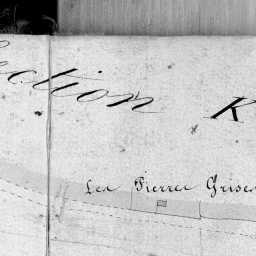 Section K
Les Pierres Grises